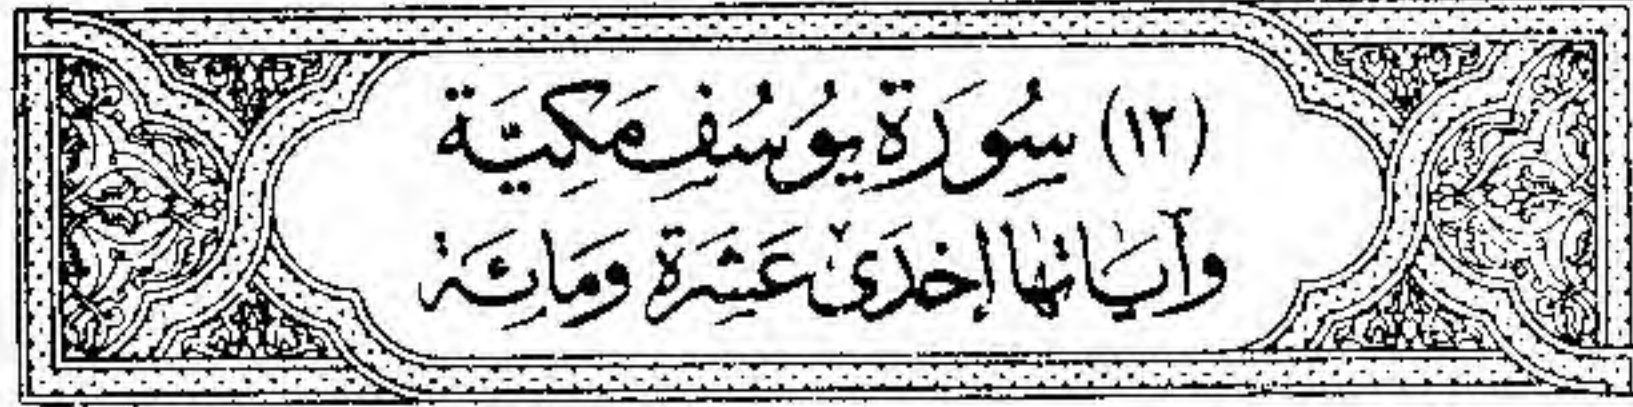 (١٢) سُورَةِ يُوسُفِ مَكِيَّة
وَآيَاتُهَا إِحْدَىٰ عَشَرَة وَمَائِة